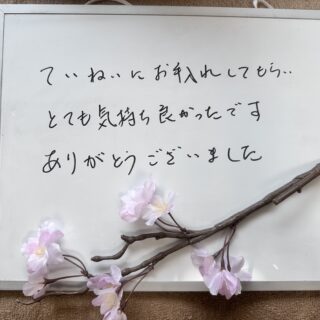 ていねいにお手入れしてもら..
とても気持ち良かったです
ありがとうございました